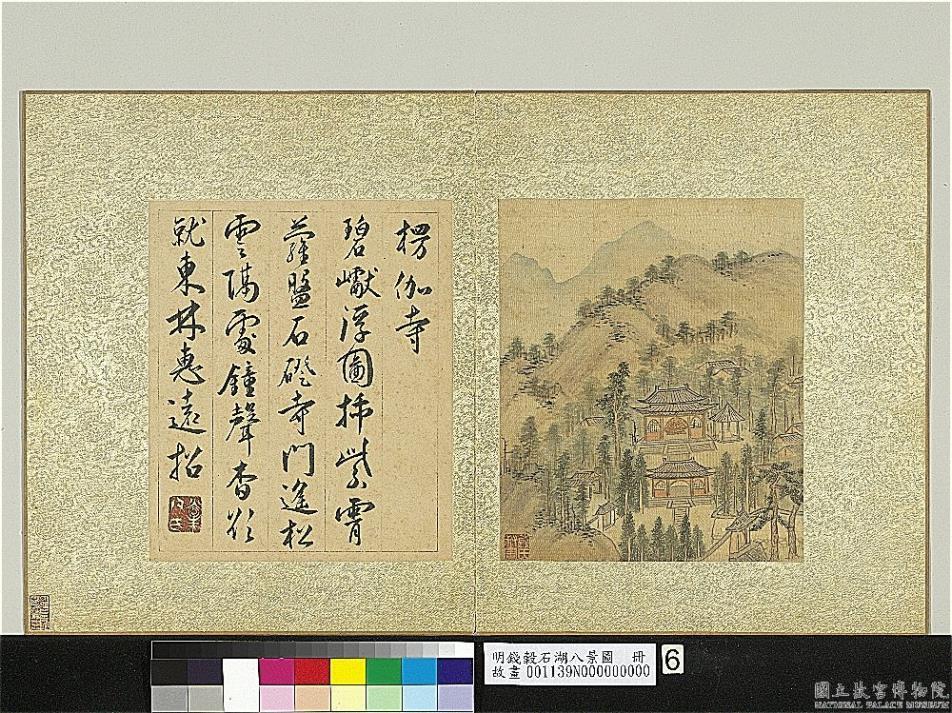 楞伽寺
碧巘浮圖拂紫霄
蘿盤石磴寺門遙松
雲隔處鐘聲杳欲
就東林惠遠招
明錢穀石湖八景圖 冊
故畫 001139N000000000
6
國立故宮博物院
NATIONAL PALACE MUSEUM